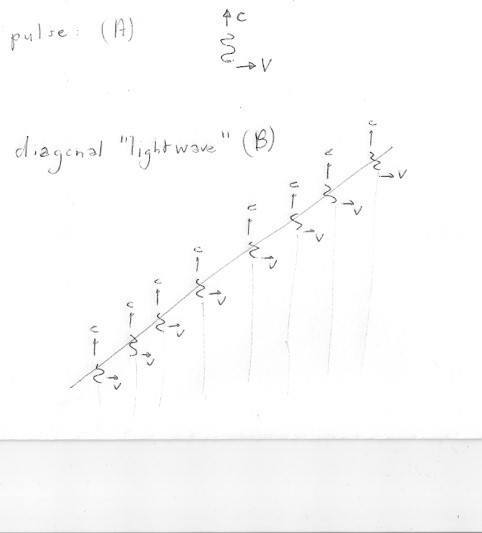 pulse: (A)
c
v
diagonal "lightwave" (B)
c
v
c
v
c
v
c
v
c
v
c
v
c
v
c
v